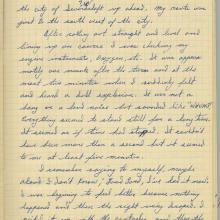 the city of up ahead. My route was
just to the south west of the city.
After rolling out straight and level and
lining up on course I was checking my
engine instruments, oxygen etc. It was approx-
imately one minute after the turn and at the
most two minutes when I suddenly felt
and heard a hell explosion. It was not a
bang or a loud noise but sounded like "WHUMP".
Everything seemed to stand still for a long time.
It seemed as if time had stopped. It couldn't
have been more than a second but it seemed
to me at least five minutes.
I remember saying to myself, maybe
aloud I don't know, "Good Lord, I've had it now".
I was beginning to feel because nothing
happened and then the right wing dropped. I
to with the controls and though the